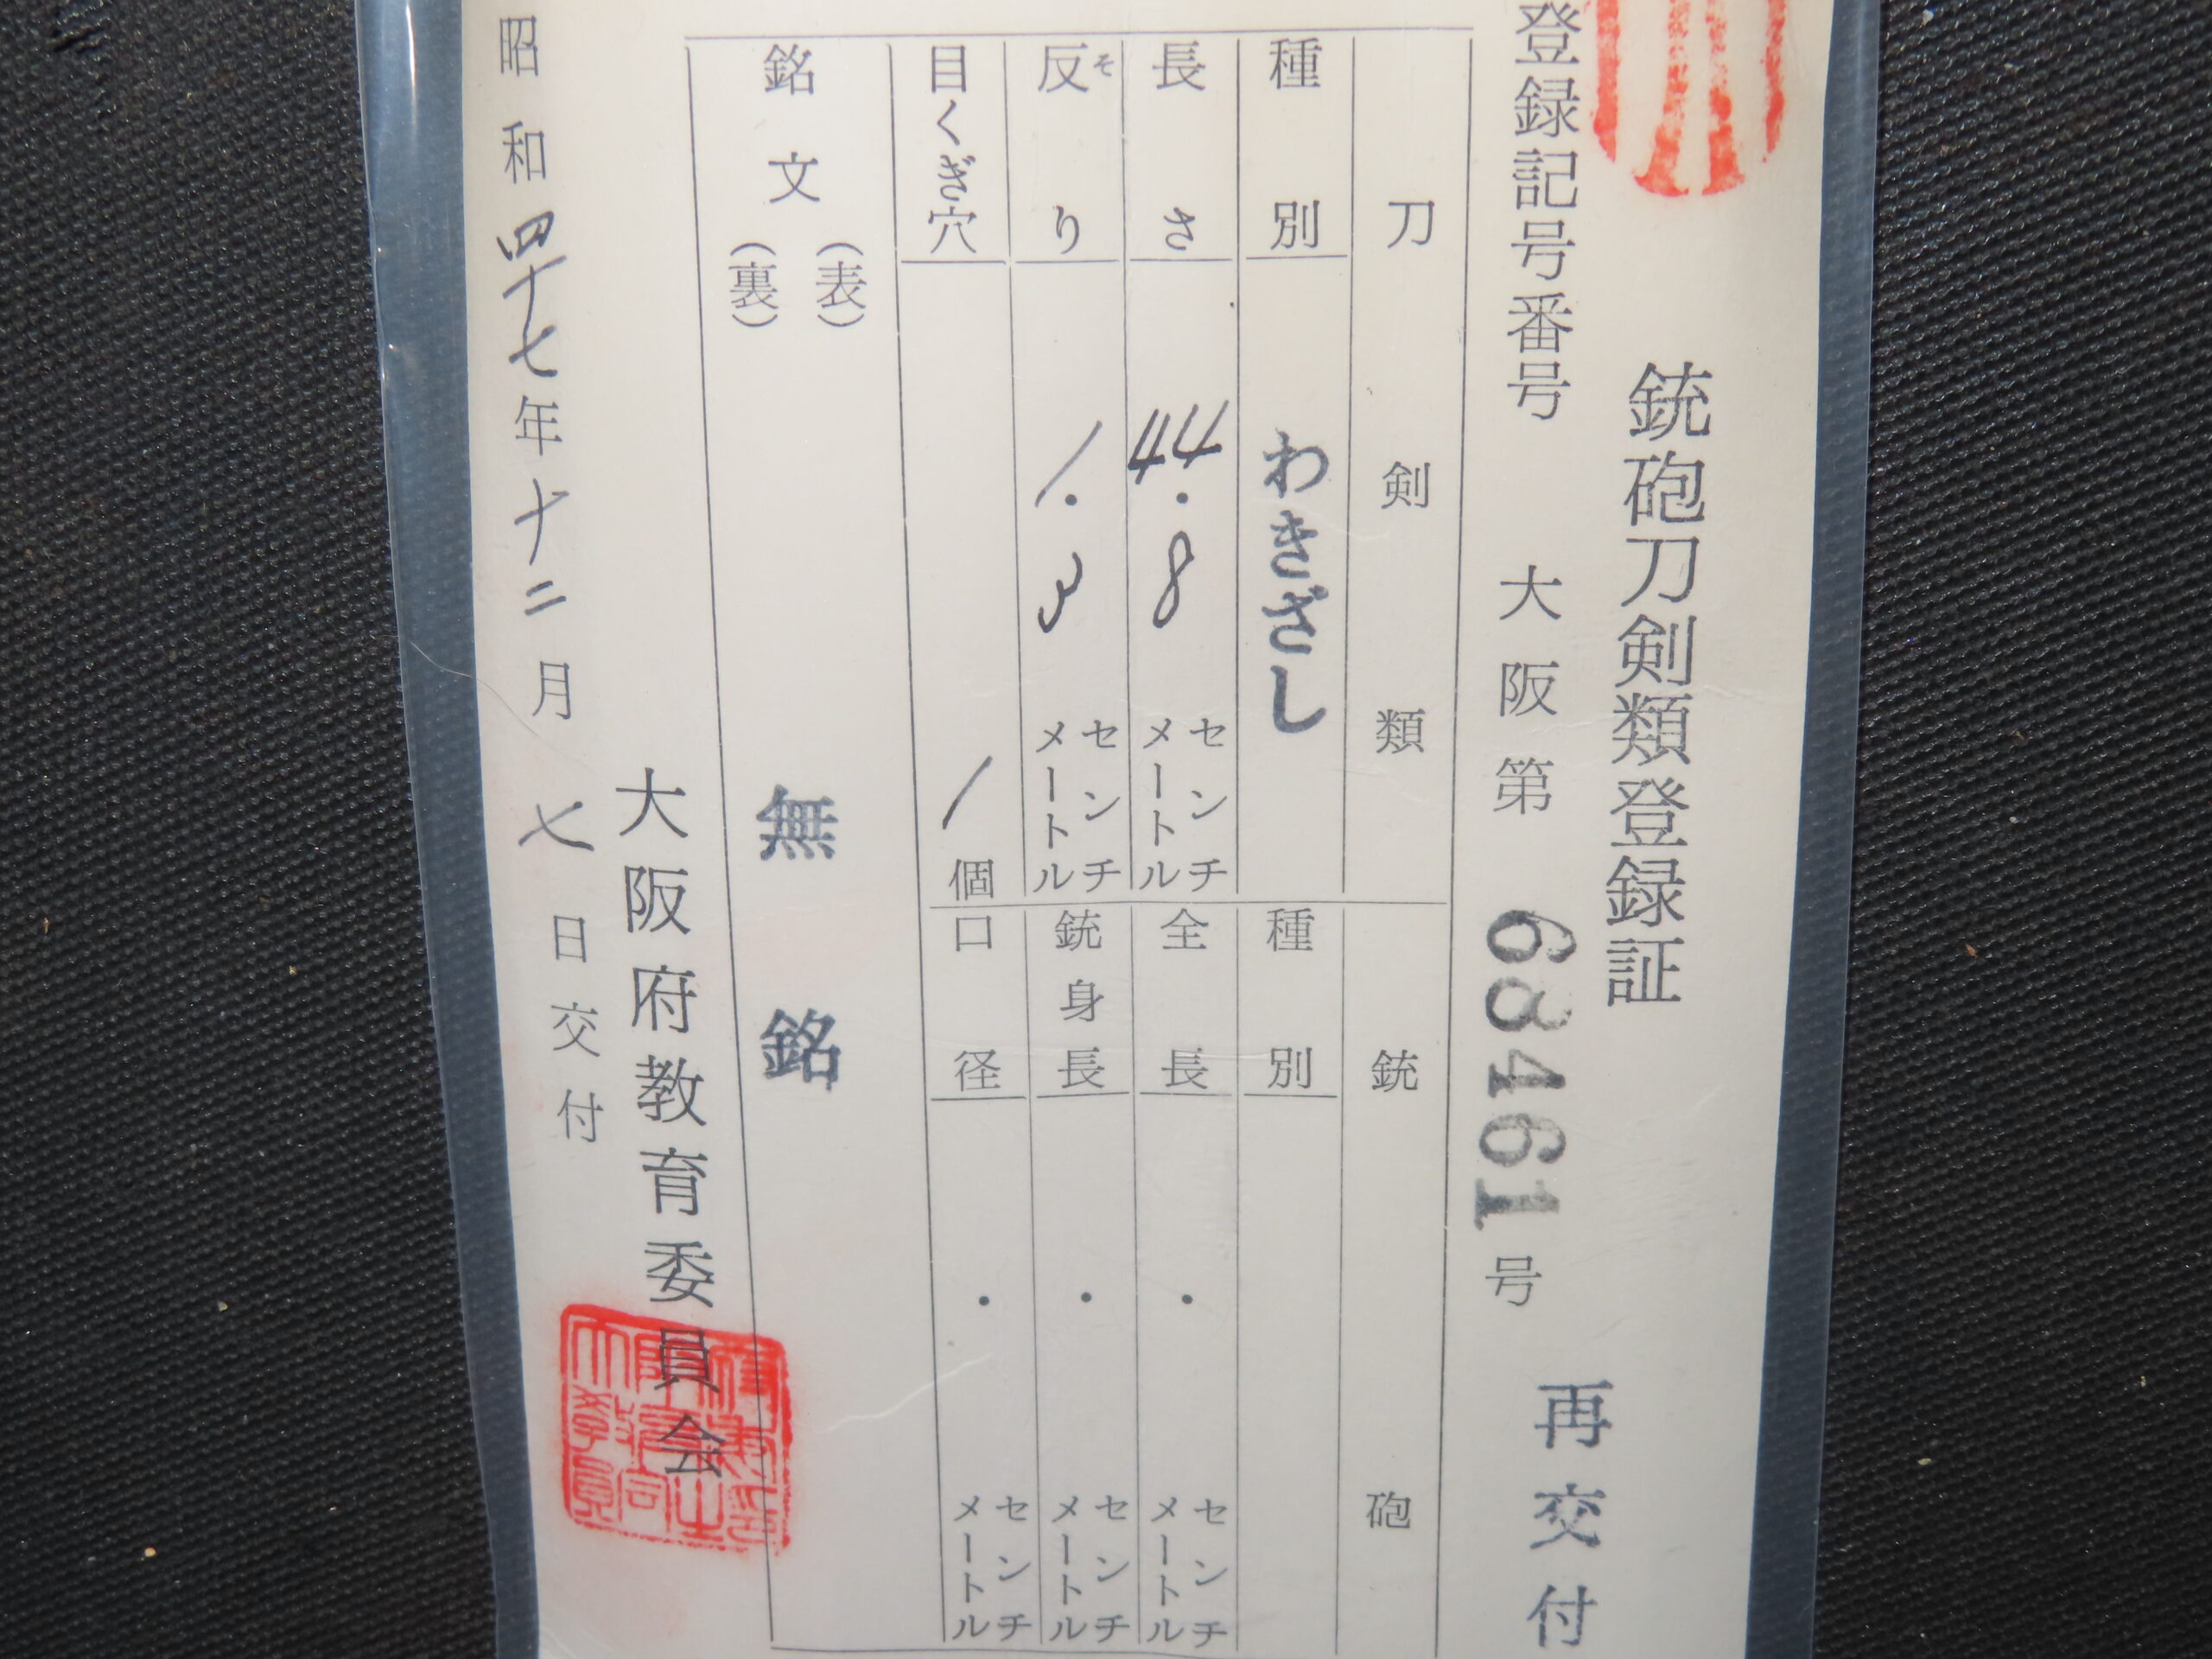 銃砲刀剣類登録証
登録記号番号 大阪第 68461号 再交付
刀剣類
種別 わきざし
長さ 44.8 センチメートル
反り 1.3 センチメートル
そ
目くぎ穴 1個
銃砲
種別
全長 . センチメートル
銃身長 . センチメートル
口径 . センチメートル
銘文 (表) (裏) 無銘
大阪府教育委員会
昭和四十七年十二月七日交付